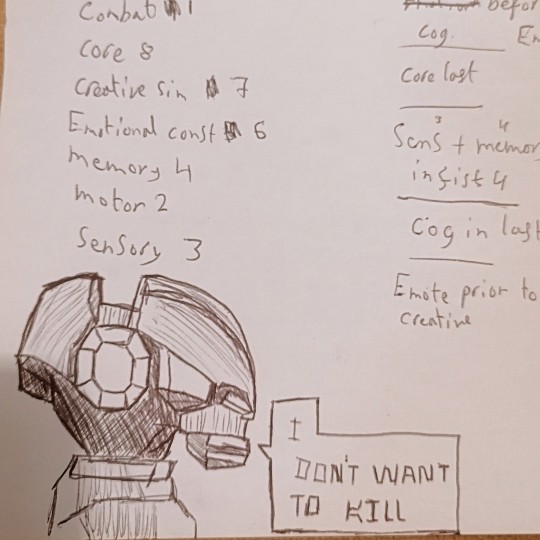 Combat 1
Core 8
Creative sim 7
Emotional const 6
Memory 4
motor 2
Sensory 3
befor
Cog. En
Core last
3 4
Sens + memory
in fist 4
Cog in last
Emote prior to
creative
I
DON'T WANT
TO KILL